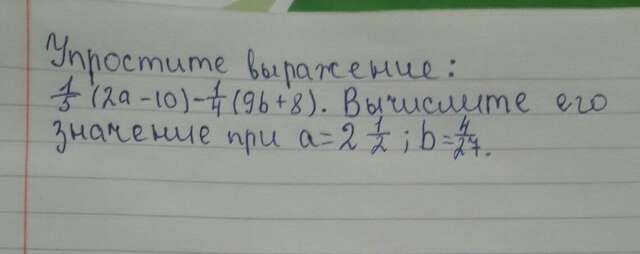 Упростите выражение:
1/5 (2a-10)-1/4(9b+8). Вычислите его
значение при a=2 1/2; b=4/27.